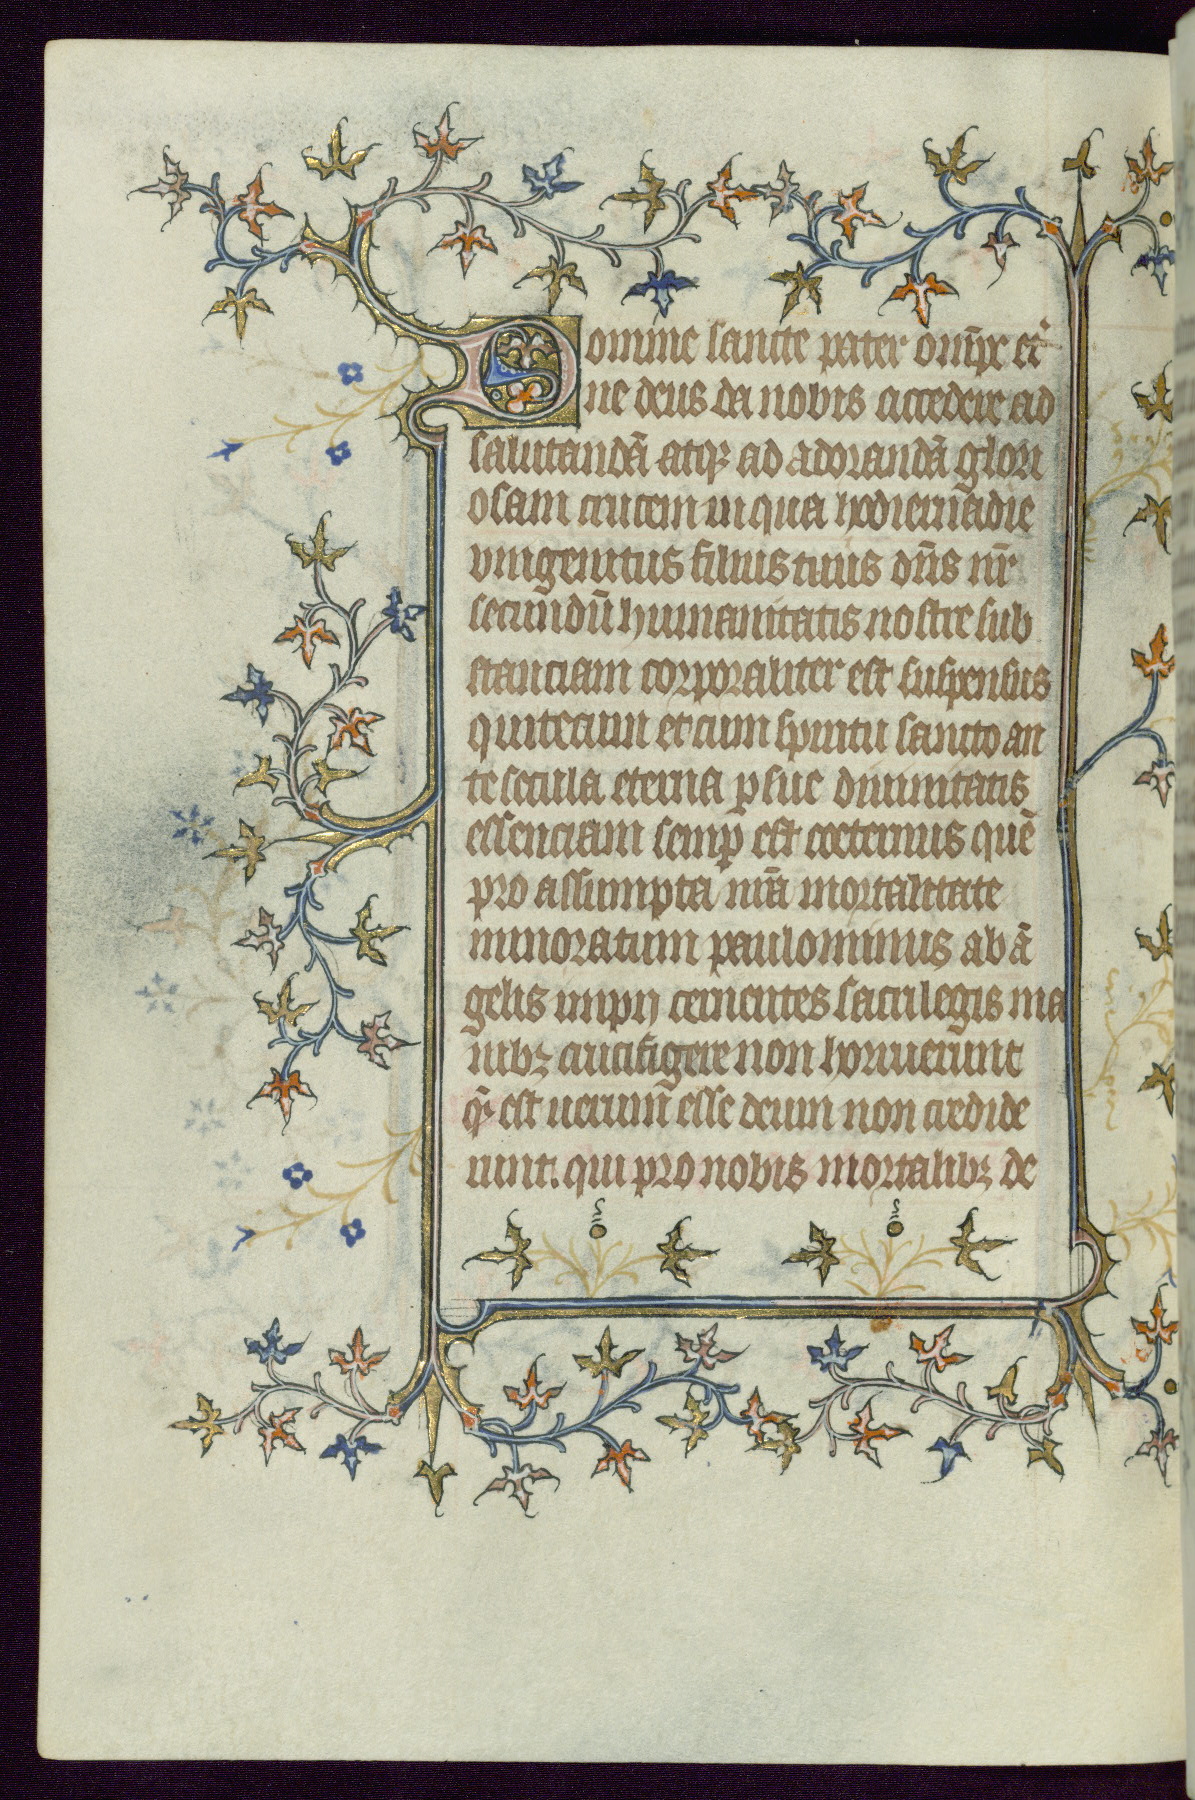 Domine sancte pater om̄ps et̉
ne deus da nobis accedere ad
salutandā atqꝫ ad adorandā glori
osam crucem in qua hodierna die
vnigenitus filius tuus dn̄s nr̄
secundū humanitatis nostre sub
stanciam corporaliter est suspensus
qui tecum et cum spiritu sancto an
te secula eterna ꝑ sue diuinitatis
essenciam semꝑ est coeternus quē
pro assumpta nr̄a mortalitate
minoratum paulominus ab ā
gelis impij cernentes sacrilegis ma
nibꝫ crucifigere non horruerunt
q̄ est uerum esse deum non credide
runt. qui pro nobis mortalibꝫ de